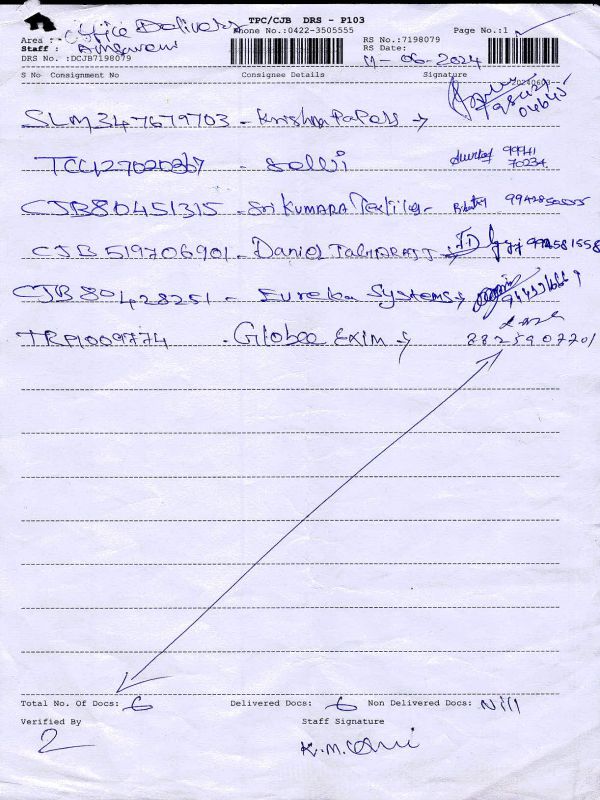 TPC/CJB DRS - P103
Area : Office Delivery Phone No.:0422-3505555 Page No.:1
Staff : RS No.:7198079
RS Date: 11-06-2024
DRS No. :DCJB7198079
S No Consignment No Consignee Details Signature
SLM347679703 - Krishna Papers
TCC127020867 - Selvi 99941
70234
CJB80451315 - Sri KUMARA Textiles
CJB519706901 - Daniel
CJB80428251 - Eureka Systems
TRP1009774 - Globee Exim
8825907701
Total No. Of Docs: 6 Delivered Docs: 6 Non Delivered Docs: Nill
Verified By Staff Signature
2